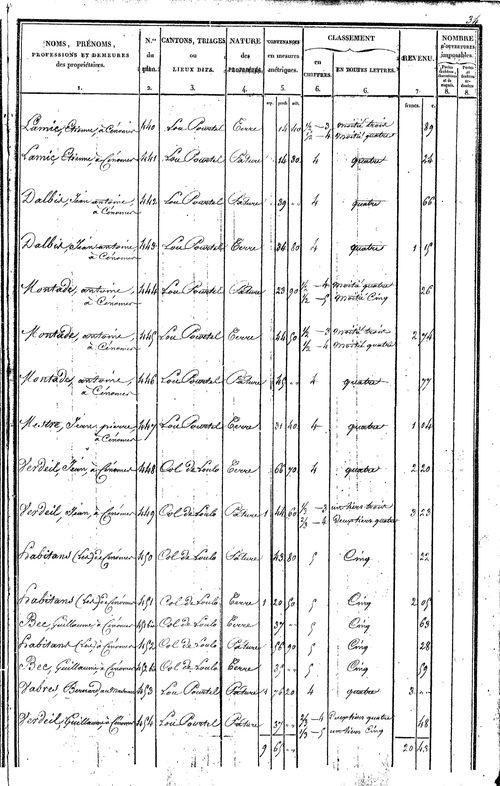 34
NOMS, PRÉNOMS, PROFESSIONS ET DEMEURES des propriétaires. | N.os du plan. | CANTONS, TRIAGES ou LIEUX DITS. | NATURE des PROPRIÉTÉS. | CONTENANCES en mesures métriques. | CLASSEMENT en CHIFFRES. | en TOUTES LETTRES. | REVENU. | NOMBRE D'OUVERTURES imposables.
1. 2. 3. 4. 5. 6. 6. 7. 8. 8.
arp. perch. mèt. francs. c.
Lamic, Etienne, à Cénomer 440 Lou Pourtel Terre 14 40 1/2 – 3 moitié trois 89
1/2 – 4 moitié quatre
Lamic Etienne, à Cénomer 441 Lou Pourtel Pâture 14 80 4 quatre 24
Dalbis, Jean antoine, 442 Lou Pourtel Pâture 39 .. 4 quatre 66
à Cénomer
Dalbis, Jean antoine, 443 Lou Pourtel Terre 34 80 4 quatre 1 15
à Cénomer
Montade, antoine, 444 Lou Pourtel Pâture 23 90 1/2 – 4 moitié quatre 26
à Cénomer 1/2 – 5 moitié Cinq
Montade, antoine, 445 Lou Pourtel Terre 44 50 1/2 – 3 moitié trois 2 74
à Cénomer 1/2 – 4 moitié quatre
Montade, antoine, 446 Lou Pourtel Pâture 45 .. 4 quatre 77
à Cénomer
Mestre, Jean pierre, 447 Lou Pourtel Terre 31 40 4 quatre 1 04
à Cénomer
Verdeil, Jean, à Cénomer 448 Col de Loulo Terre 66 70 4 quatre 2 20
Verdeil, Jean, à Cénomer 449 Col de Loulo Pâture 1 44 60 1/3 – 3 un tiers trois 3 23
2/3 – 4 Deux tiers quatre
habitans (Les) de Cénomer 450 Col de Loulo Pâture 43 80 5 Cinq 22
habitans (Les) de Cénomer 451 Col de Loulo Terre 1 20 50 5 Cinq 2 05
Bec, Guillaume, à Cénomer 451 bis Col de Loulo Terre 37 .. 5 Cinq 63
habitans (Les) à Cénomer 452 Col de Loulo Pâture 56 90 5 Cinq 28
Bec, Guillaume à Cénomer 452 bis Col de Loulo Terre 35 .. 5 Cinq 59
Vabres Bernard, 453 Lou Pourtel Pâture 1 76 20 4 quatre 3 ..
Verdeil, Guillaume à Cénomer 454 Lou Pourtel Pâture 37 .. 2/3 – 4 Deux tiers quatre 48
1/3 – 5 un tiers Cinq
9 65 .. 20 43